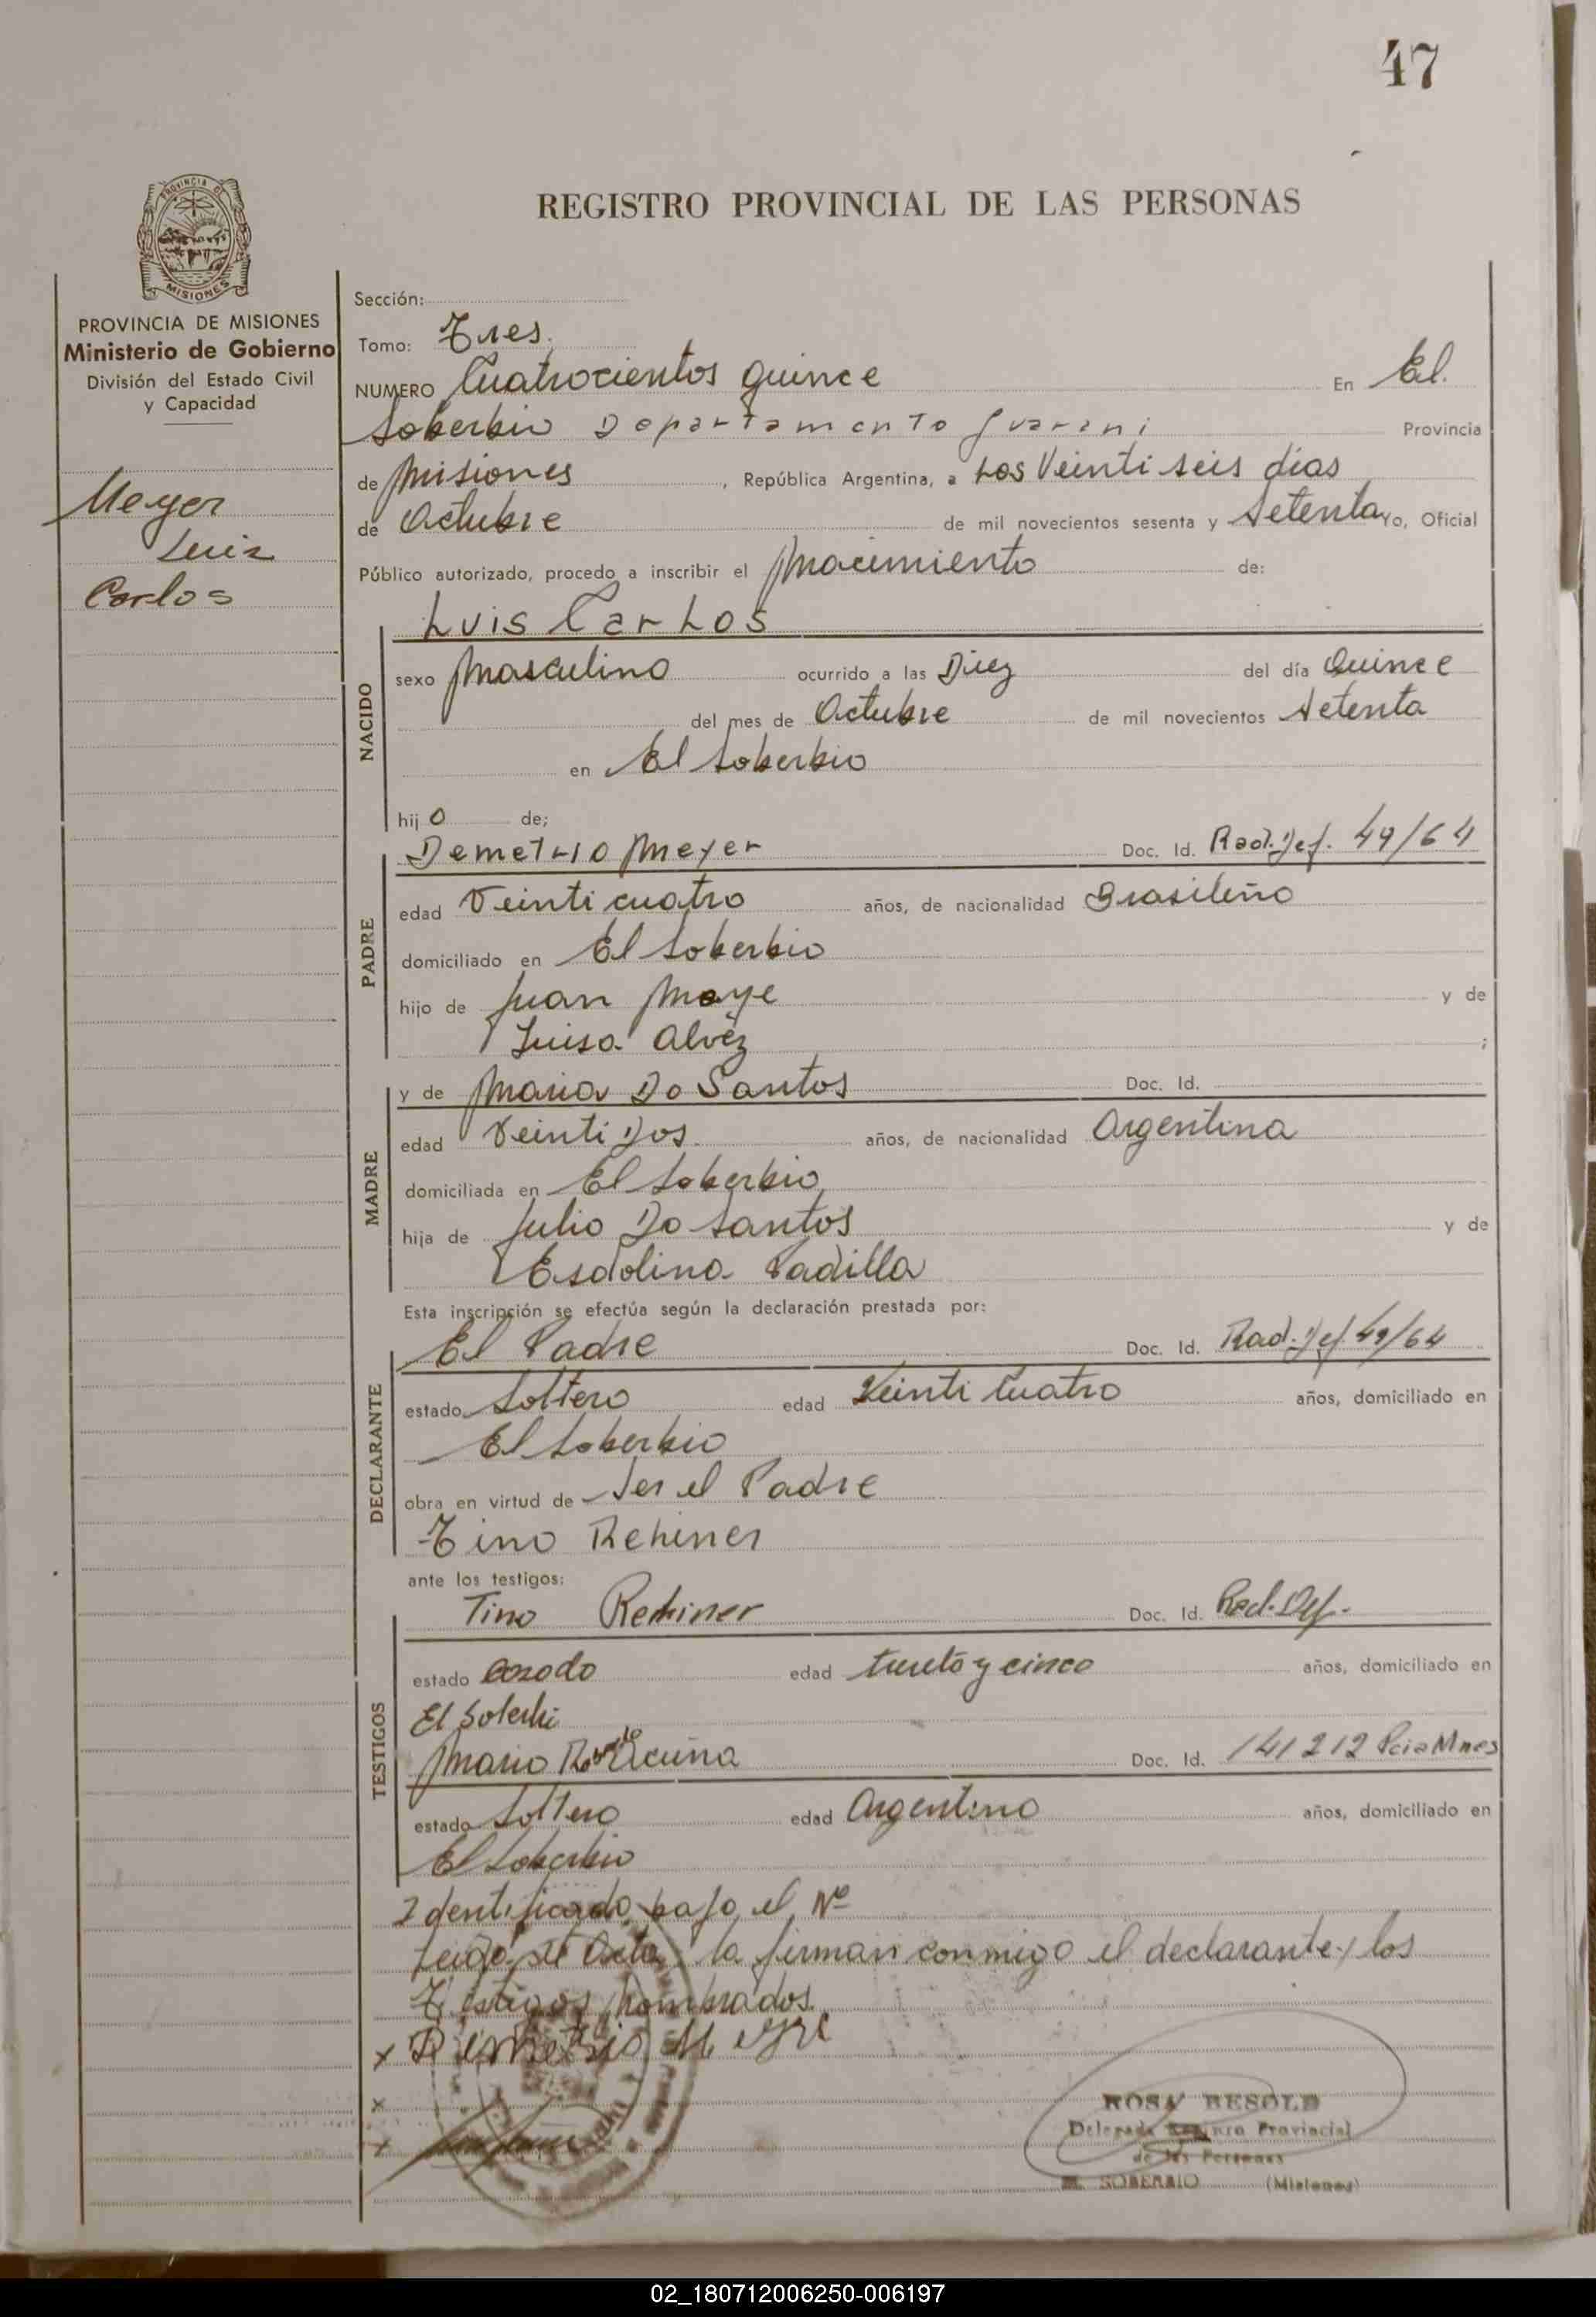 47
REGISTRO PROVINCIAL DE LAS PERSONAS
PROVINCIA DE MISIONES
Ministerio de Gobierno
División del Estado Civil
y Capacidad
Meyer
Luis
Carlos
Sección:
Tomo: Tres.
NUMERO Cuatrocientos quince En El.
Soberbio Departamento Guarani Provincia
de Misiones, República Argentina, a Los Veinti seis días
de Octubre de mil novecientos sesenta y Setenta Yo, Oficial
Público autorizado, procedo a inscribir el Nacimiento de:
Luis Carlos
NACIDO
sexo Masculino ocurrido a las Diez del día Quince
del mes de Octubre de mil novecientos Setenta
en El Soberbio
hijo de;
Demetrio Meyer Doc. Id. Rad. Def. 49/64
PADRE
edad Veinti cuatro años, de nacionalidad Brasileño
domiciliado en El Soberbio
hijo de Juan Meye y de
Luisa Alvez ;
y de Maria Do Santos Doc. Id.
MADRE
edad Veinti Dos. años, de nacionalidad Argentina
domiciliada en El Soberbio
hija de Julio Do Santos y de
Esdolina Padilla
Esta inscripción se efectúa según la declaración prestada por:
El Padre Doc. Id. Rad. Def. 49/64
DECLARANTE
estado Soltero edad Veinti Cuatro años, domiciliado en
El Soberbio
obra en virtud de Ser el Padre
Tino Rehiner
ante los testigos:
Tino Rehiner Doc. Id. Rad. Def.
TESTIGOS
estado Casado edad treinta y cinco años, domiciliado en
El Soberbi
Mario Roberto Acuña Doc. Id. 141212 Pcia Mnes
estado Soltero edad Argentino años, domiciliado en
El Soberbio
Identificado bajo el Nº
Leida el Acta, la firman conmigo el declarante y los
Testigos nombrados.
x Demetrio Meyre
x
x
ROSA RESOLD
Delegada Registro Provincial
de las Personas
EL SOBERBIO (Misiones)
02_180712006250-006197